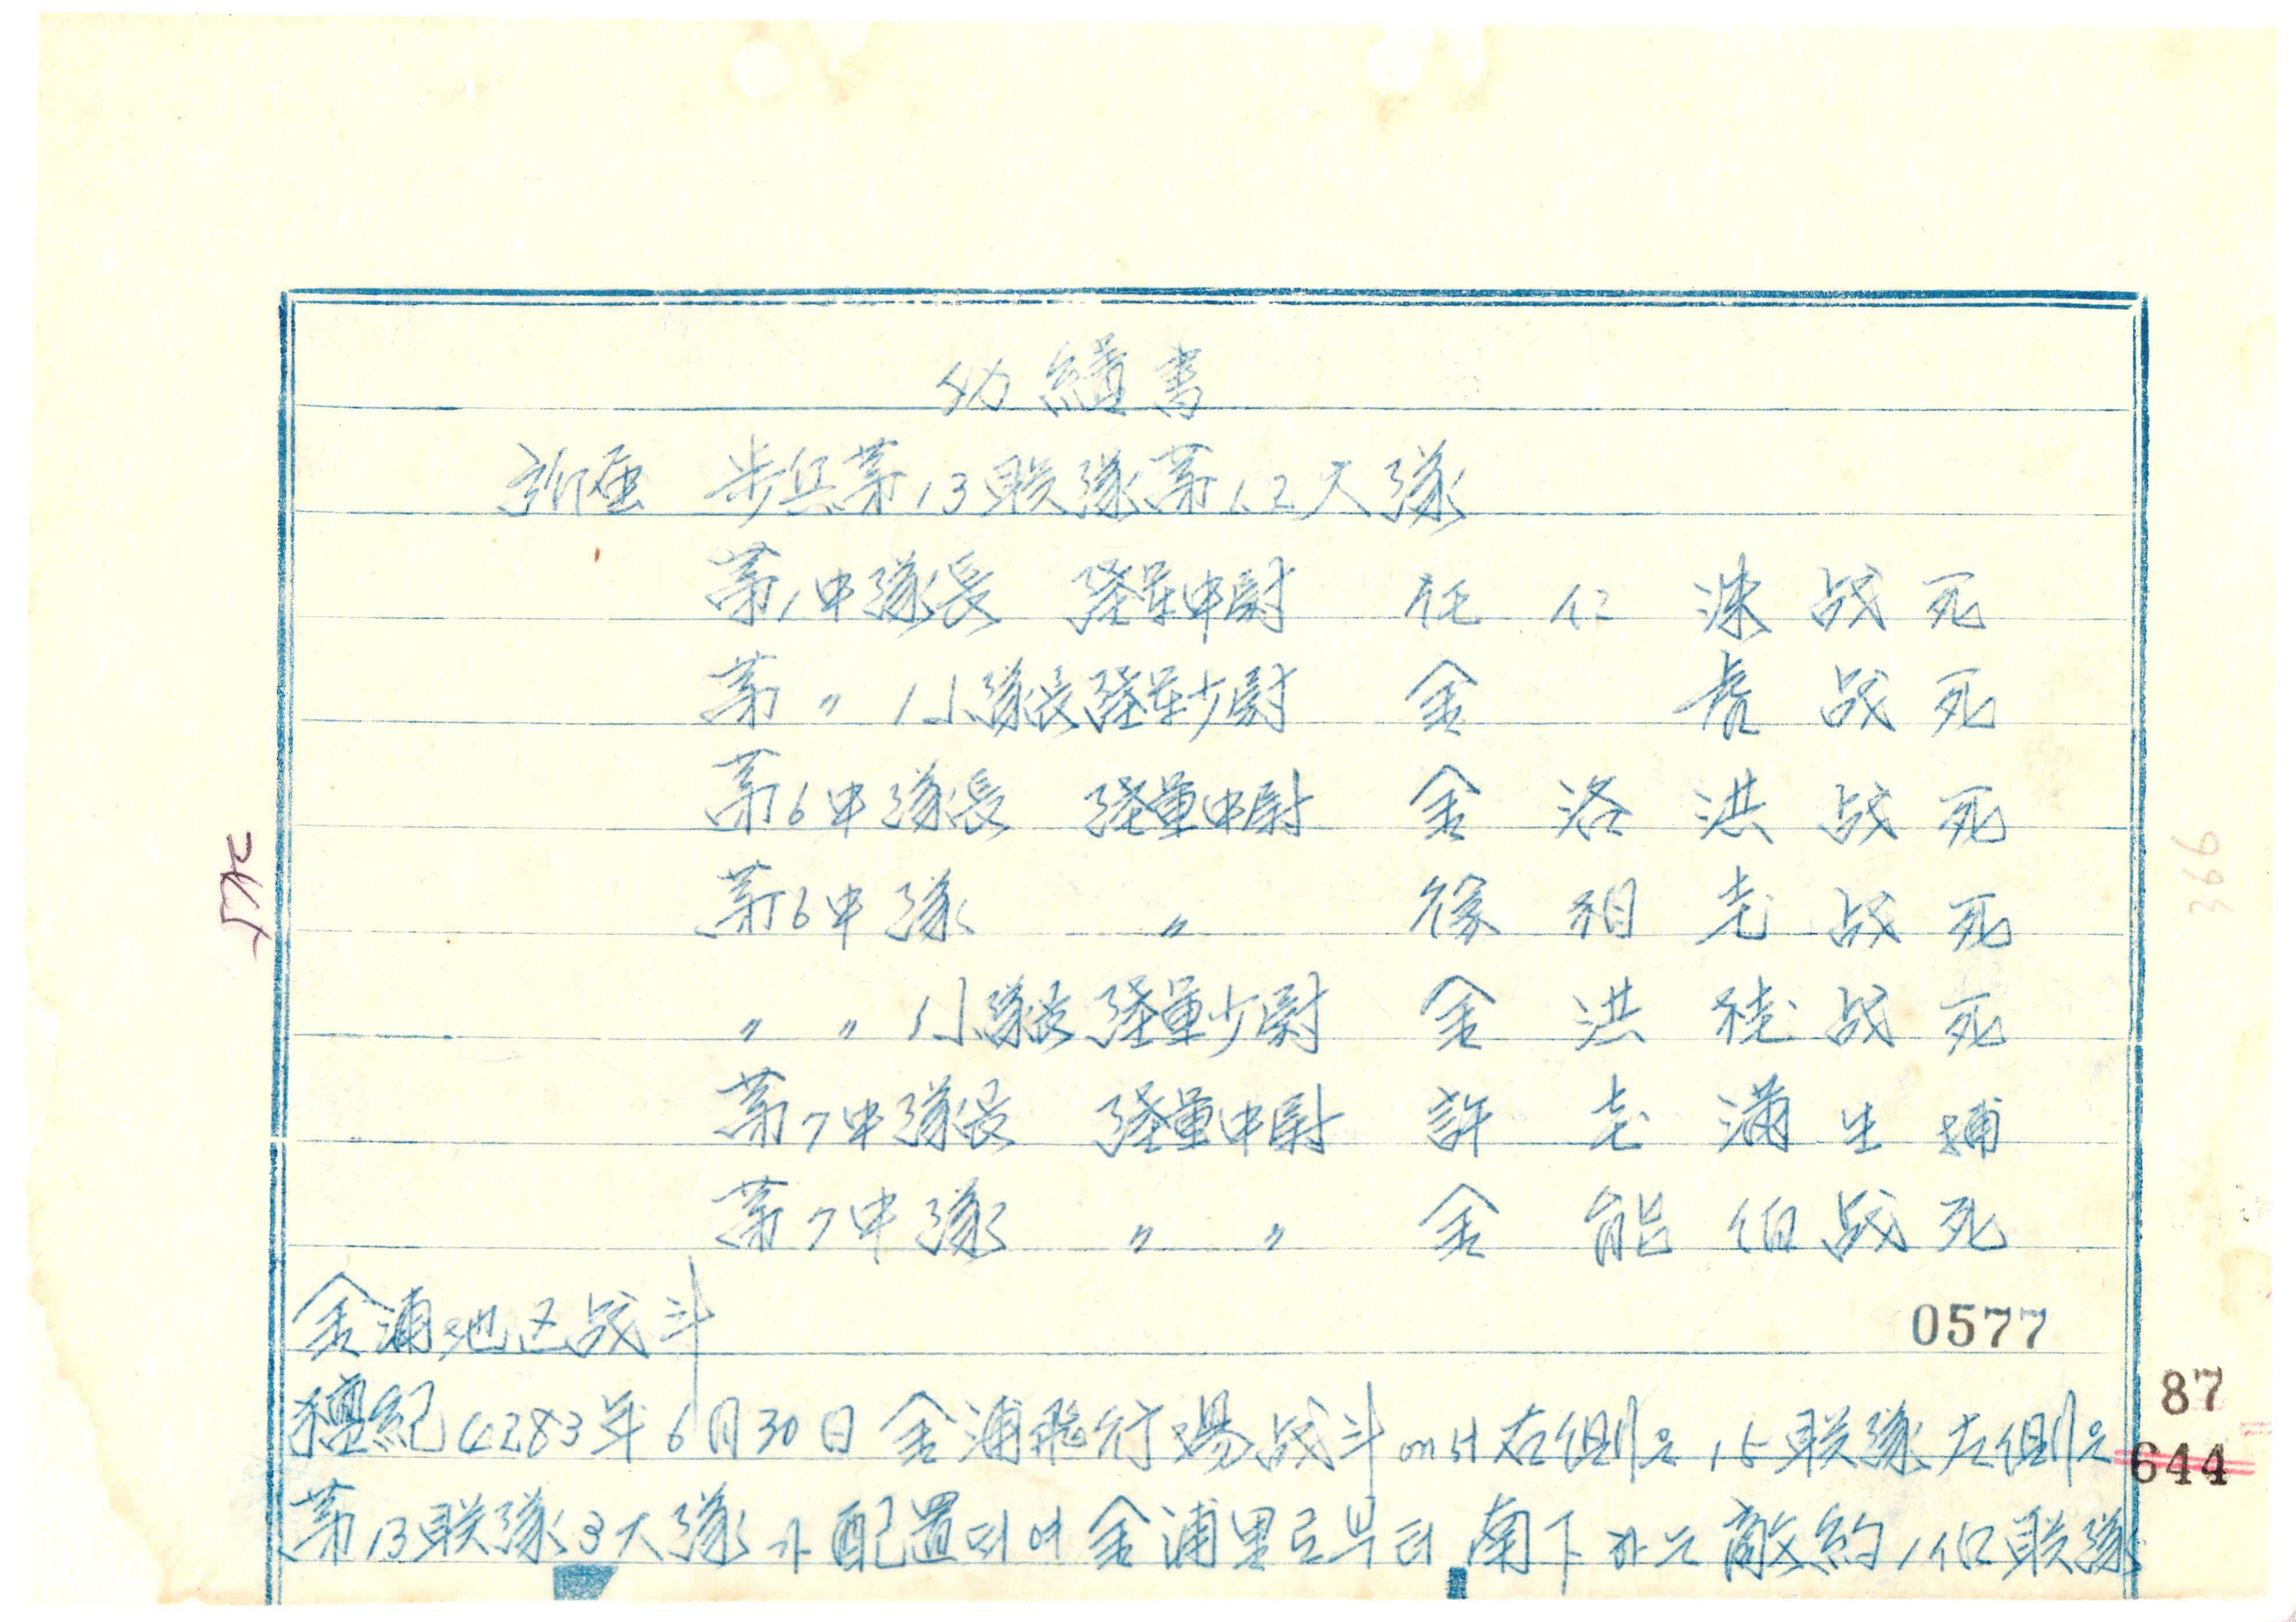 功績書
所屬 步兵第13联隊第1.2大隊
第1中隊長 陸軍中尉 任仁 战死
第〃1小隊長陸軍少尉 金 战死
第6中隊長 陸軍中尉 金洛洪战死
第6中隊 〃 徐相 战死
〃 〃 1小隊長 陸軍少尉 金洪 战死
第7中隊長 陸軍中尉 許 满生捕
第7中隊 〃 〃 金能伯战死
金浦地区战斗
0577
檀紀4283年6月30日 金浦飛行場战斗에서 右側은 15联隊 左側은
87
644
第13联隊3大隊가 配置되여 金浦里로부터 南下하는 敵約1個联隊
366